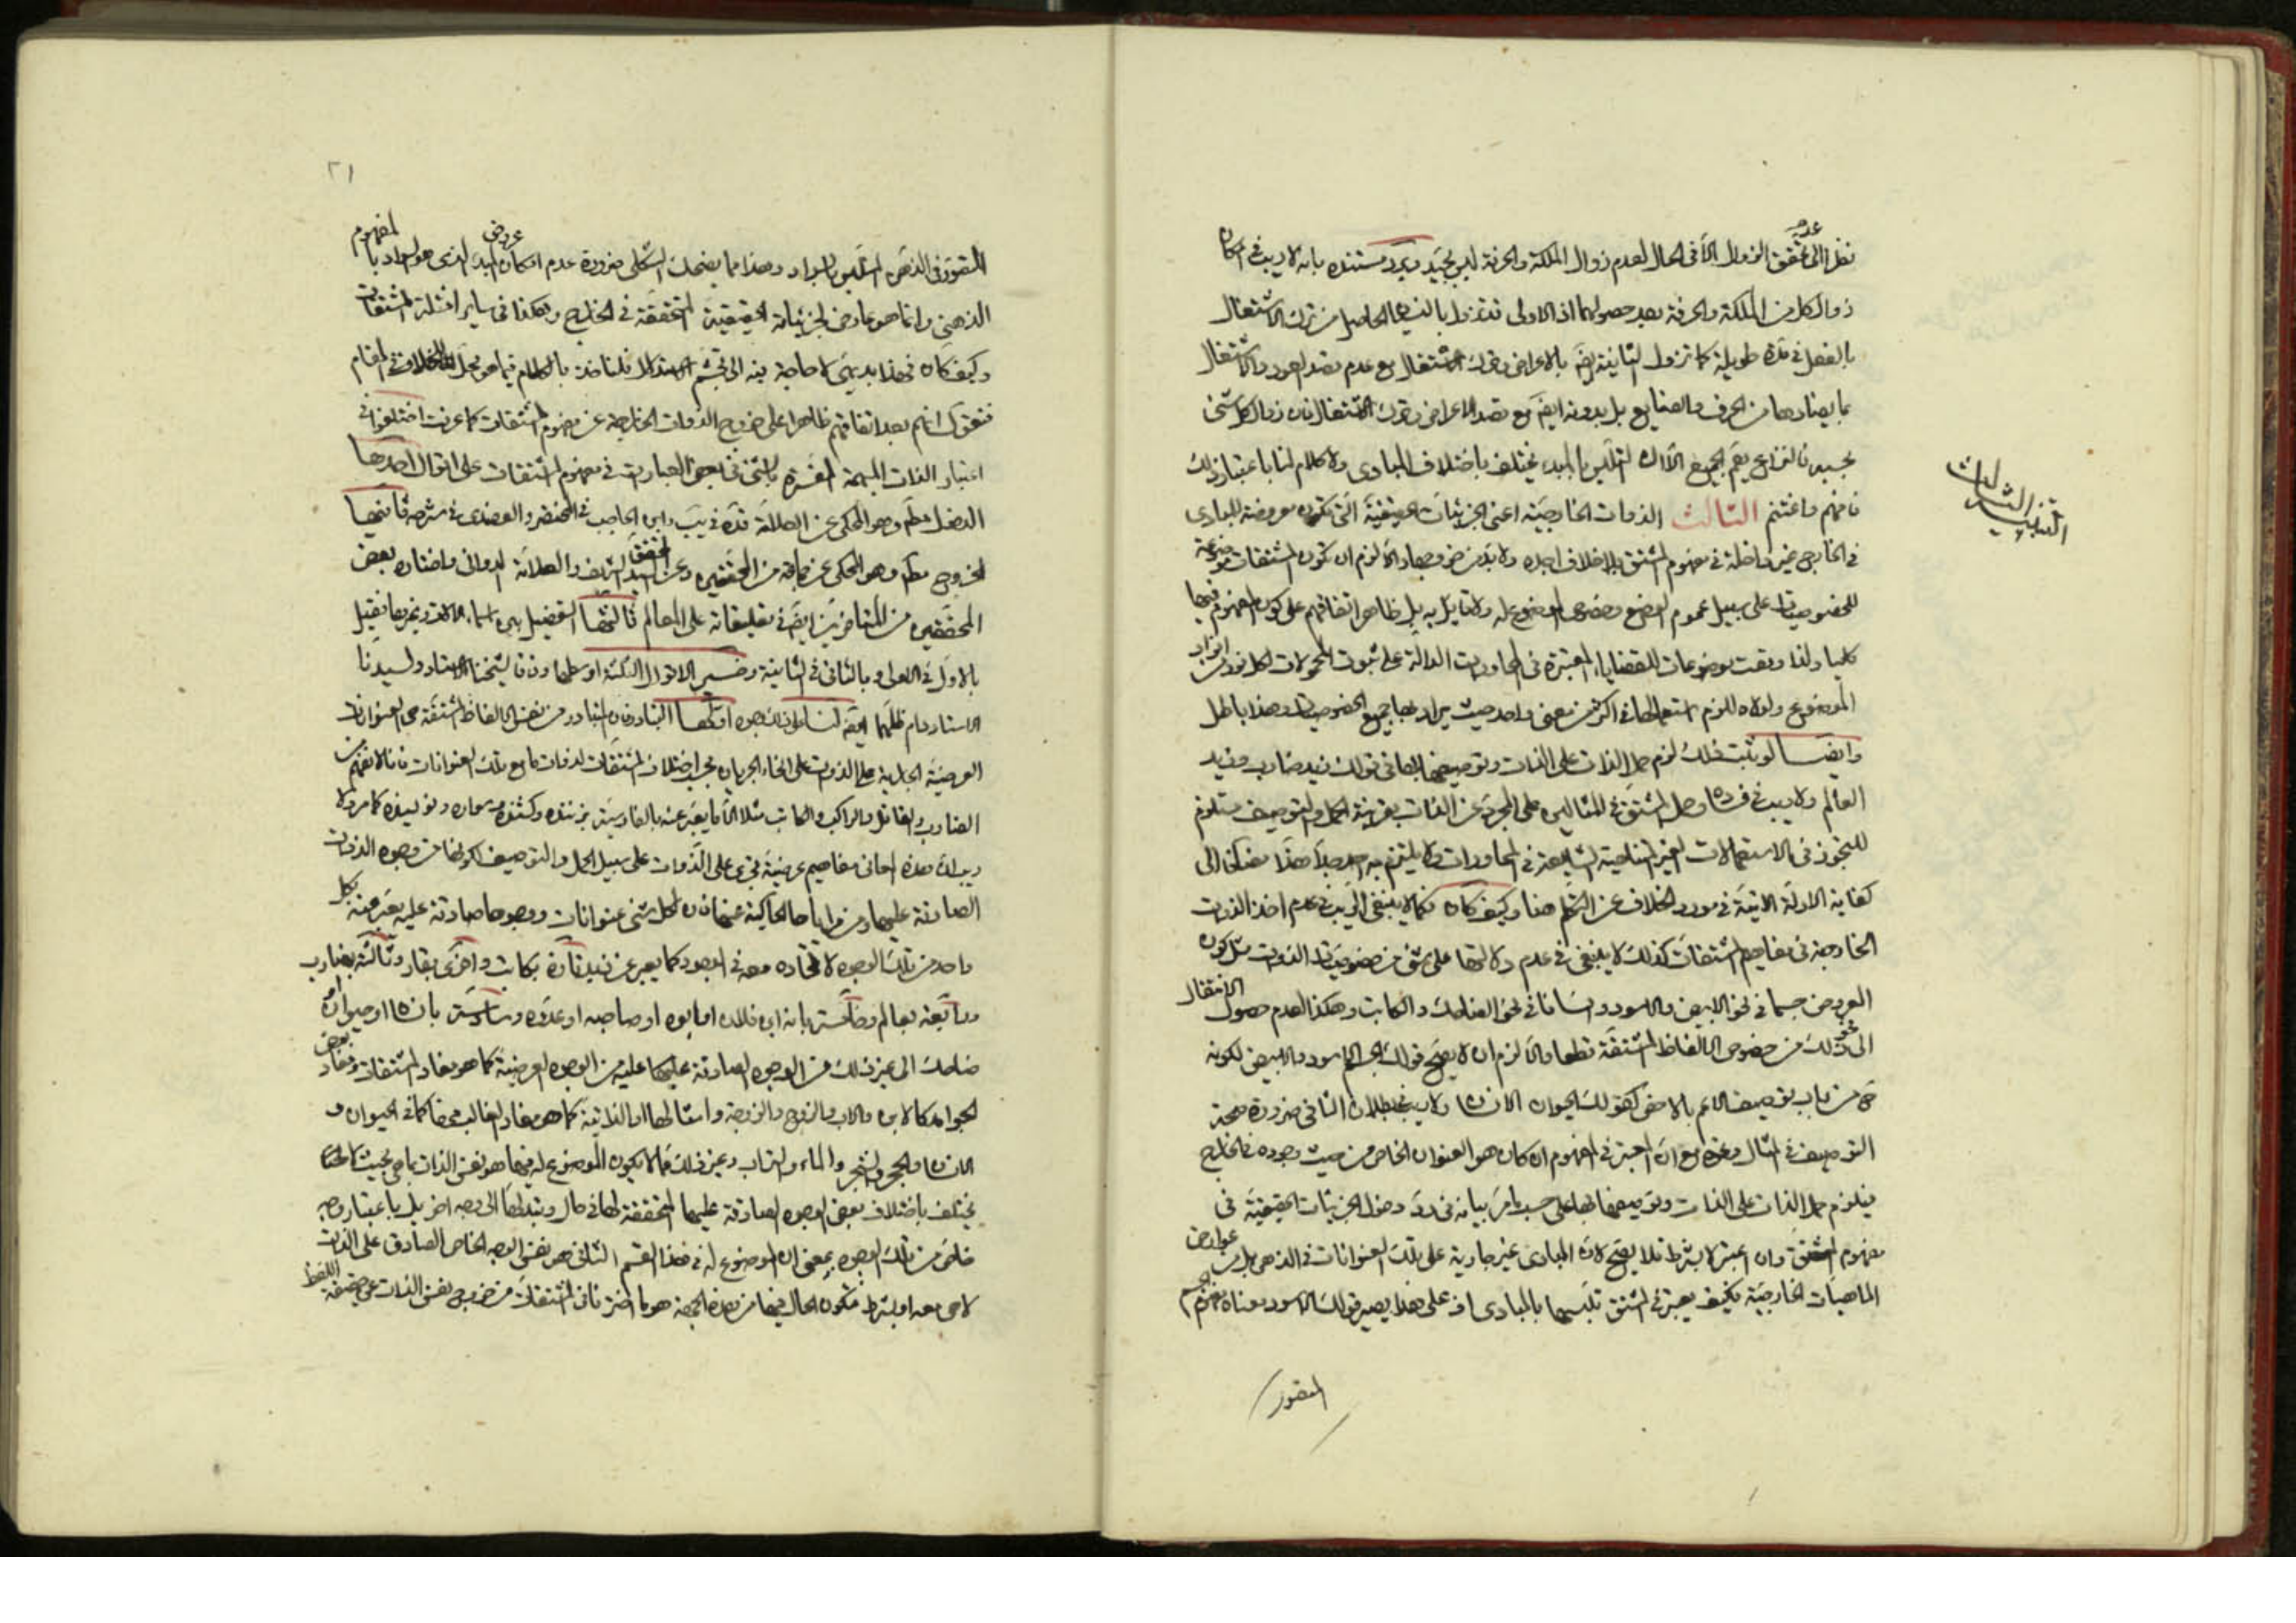 نظرا الى عدم تحقق الزوال الا فى الحال لعدم زوال الملكة والحرفة ليس بجيد ويرد مستنده بانه لا ريب فى امكان
زوال كل من الملكة والحرفة بعد حصولهما اذ الاولى قد تزول بالنسيان الحاصل من ترك الاشتغال
بالفعل فى مدة طويلة كما تزول الثانية ايضا بالاعراض وترك الاشتغال مع عدم قصد العود والاشتغال
بما يضادها من الحرف والصنايع بل بدونه ايضا مع قصد الاعراض وترك الاشتغال فان زوال كل شئ
بحسبه فالنزاع يعم الجميع الا ان التلبس بالمبدء يختلف باختلاف المبادى ولا كلام لنا باعتبار ذلك
فافهم واغتنم الثالث الذوات الخارجية اعنى الجزئيات الحقيقية التى تكون معروضة للمبادى
التنبيه الثالث
فى الخارج غير داخلة فى مفهوم المشتق بلا خلاف اجده ولا بد من خروجها والا لزم ان تكون المشتقات موضوعة
للخصوصيات على سبيل عموم الوضع وخصوص الموضوع له ولا قايل به بل ظاهرا اتفاقهم على كون المفهوم فيها
كليا ولذا وقعت موضوعات للقضايا المعتبرة فى المحاورات الدالة على ثبوت المحمولات لكل فرد من افراد
الموضوع ولولاه للزم استعمالها فى اكثر من معنى واحد حيث يراد بها جميع الخصوصيات وهذا باطل
وايضا لو ثبت ذلك لزم حمل الذات على الذات وتوصيفها بها فى قولك زيد ضارب وزيد
العالم ولا ريب فى فساده وحمل المشتق فى المثالين على المجرد عن الذات بقرينة الحمل والتوصيف مستلزم
للتجوز فى الاستعمالات الغير المتناهية الشايعة فى المحاورات ولا يلتزم به احد جدا هذا مضافا الى
كفاية الادلة الاتية فى مورد الخلاف عن التكلم هنا وكيف كان فكما لا ينبغى الريب فى عدم اخذ الذوات
الخارجية فى مفاهيم المشتقات كذلك لا ينبغى فى عدم دلالتها على شئ من خصوصيات الذوات مثل كون
المعروض جسما فى نحو الابيض والاسود وانسانا فى نحو الضاحك والكاتب وهكذا لعدم حصول الانتقال
الى شئ من ذلك من خصوص الالفاظ المشتقة قطعا والا لزم ان لا يصح قولك الجسم الاسود والابيض لكونه
ح من باب توصيف الاعم بالاخص كقولك الحيوان الانسان ولا ريب فى بطلان التالى ضرورة صحة
التوصيف فى المثال وغيره مع ان المعتبر فى المفهوم ان كان هو العنوان الخاص من حيث وجوده فى الخارج
فيلزم حمل الذات على الذات وتوصيفها بها على حسب ما مر بيانه فى رد دخول الجزئيات الحقيقية فى
مفهوم المشتق وان اعتبر لا بشرط فلا يصح لان المبادى غير جارية على تلك العنوانات فى الذهن بل من عوارض
الماهيات الخارجية فكيف يعتبر فى المشتق تلبسها بالمبادى اذ على هذا يصير قولك الاسود معناه مفهوم الجسم
المتصور
٢١
المتصور فى الذهن المتلبس بالسواد وهذا مما يضحك الثكلى ضرورة عدم امكان عروض المبدء الذى هو السواد بالمفهوم
الذهنى وانما هو عارض لجزئياته الحقيقية المتحققة فى الخارج وهكذا فى ساير امثلة المشتقات
وكيف كان فهذا بديهى لا حاجة فيه الى تجشم الاستدلال فلناخذ بالكلام فيما هو محل للخلاف فى المقام
فنقول انهم بعد اتفاقهم ظاهرا على خروج الذوات الخارجية عن مفهوم المشتقات كما عرفت اختلفوا فى
اعتبار الذات المبهمة المفسرة بالشئ فى بعض العبارات فى مفهوم المشتقات على اقوال احدها
الدخول مطلقا وهو المحكى عن العلامة قده فى يب وابن الحاجب فى المختصر والعضدى فى شرحه ثانيها
الخروج مطلقا وهو المحكى عن جماعة من المحققين وعن المحقق السيد الشريف والعلامة الدوانى واختاره بعض
المحققين من المتاخرين ايضا فى تعليقاته على المعالم ثالثها التفصيل بين اسماء الالات وغيرها فقيل
بالاول فى الاولى وبالثانى فى الثانية وخير الاقوال الثلثة اوسطها وفاقا لشيخنا الاستاد ولسيدنا
الاستاد دام ظلهما ايضا لنا على ذلك وجوه اولها التبادر فان المتبادر من نفس الالفاظ المشتقة هى العنوانات
العرضية الجارية على الذوات على انحاء الجريان بحسب اختلاف المشتقات لا ذوات ما مع تلك العنوانات فانا لا نفهم من
الضارب والقاتل والراكب والكاتب مثلا الا ما يعبر عنه بالفارسية بزننده وكشنده وسواره ونويسنده كما مر ولا
ريب ان هذه المعانى مفاهيم عرضية تجرى على الذوات على سبيل الحمل والتوصيف لكونها من وجوه الذوات
الصادقة عليها ومن مراياها الحاكية عنها فان لكل شئ عنوانات ووجوها صادقة عليه يعبر عنه بكل
واحد من تلك الوجوه لاتحاده معه فى الوجود كما يعبر عن زيد تارة بكاتب واخرى بقار وثالثة بضارب
ورابعة بعالم وخامسة بانه ابن فلان او ابوه او صاحبه او عدوه وسادسة بانسان او حيوان او
ضاحك الى غير ذلك من الوجوه الصادقة عليه من الوجوه العرضية كما هو مفاد المشتقات ومفاد بعض
الجوامد كالابن والاب والزوج والزوجة وامثالها او الذاتية كما هو مفاد الغالب منها كما فى الحيوان و
الانسان والحجر والشجر والماء والتراب وغير ذلك مما لا يكون الموضوع له فيها هو نفس الذات بما هى بحيث
يختلف باختلاف بعض الوجوه الصادقة عليها المتحققة لها فى حال وتبدلها الى وجه اخر بل باعتبار وجه
خاص من تلك الوجوه بمعنى ان الموضوع له فى هذا القسم الثانى هو نفس الوجه الخاص الصادق على الذات
لا هى معه او بشرط فيكون الحال فيها من هذه الجهة هو ما اخترنا فى المشتقات من خروج نفس الذات عن حقيقة اللفظ